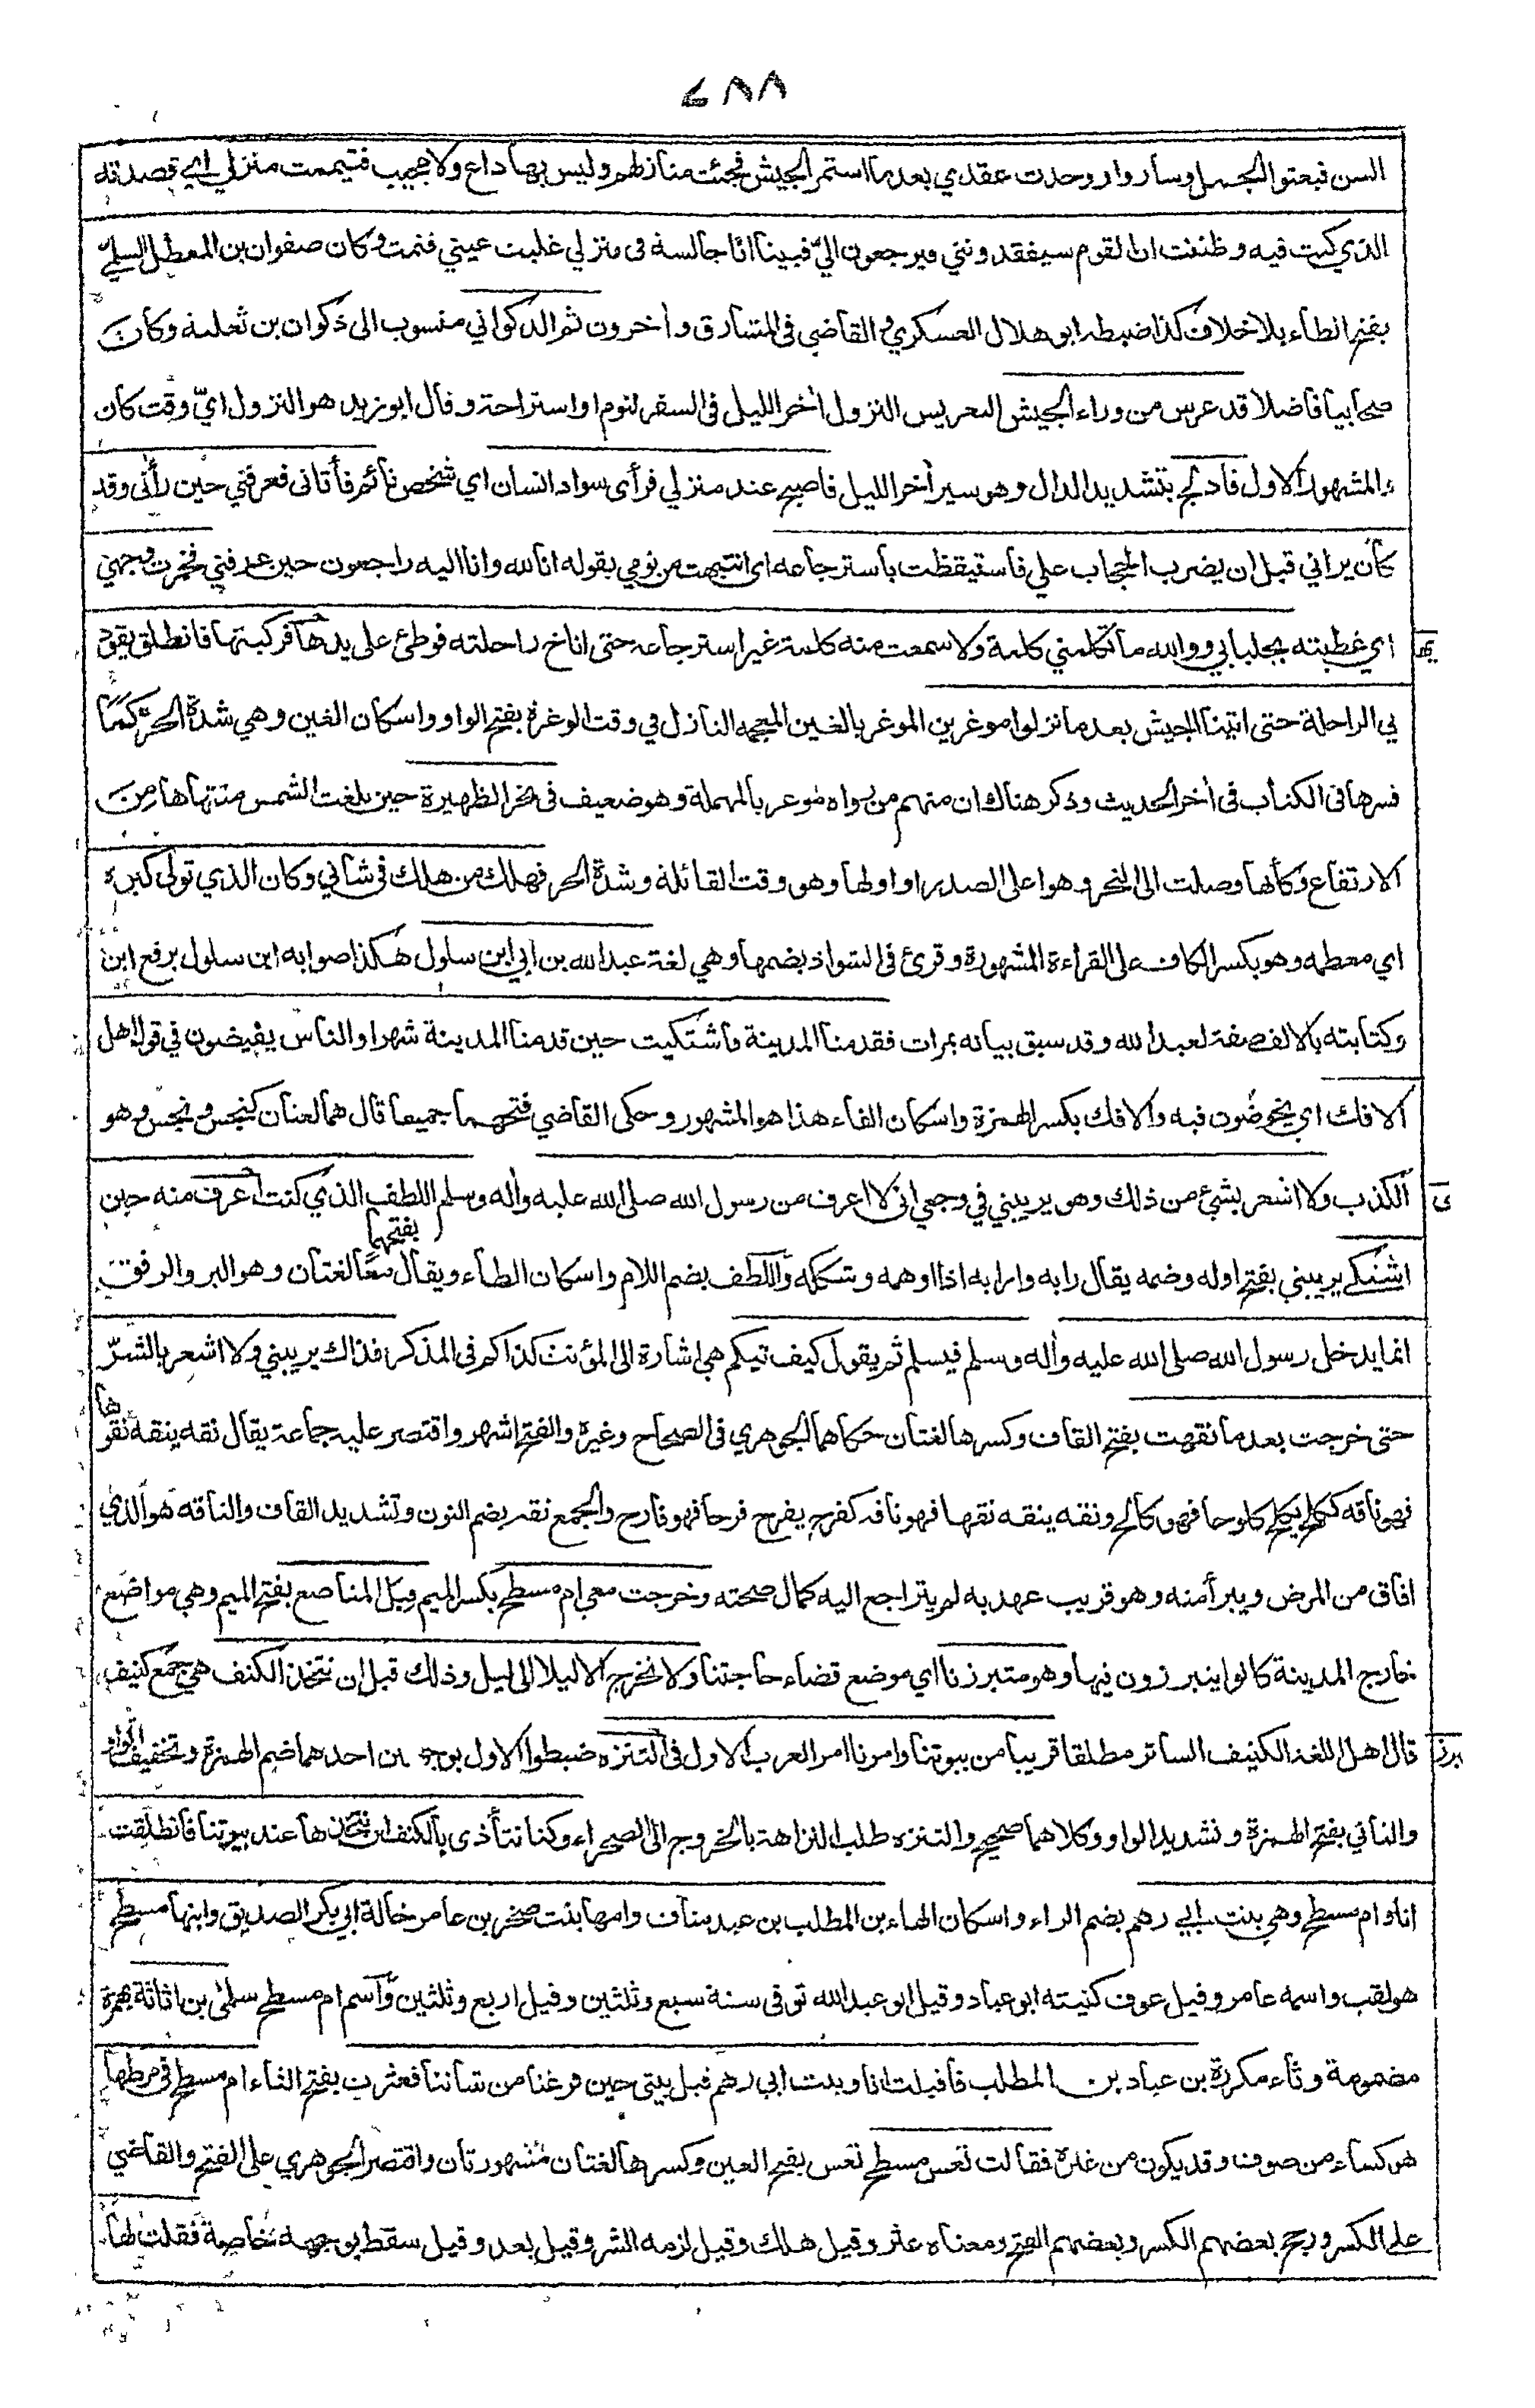 ٤٨٨
السن فبعثوا الجمل وساروا ووجدت عقدي بعدما استمر الجيش فجئت منازلهم وليس بها داع ولا مجيب فتيممت منزلي اي قصدته
الذي كنت فيه وظننت ان القوم سيفقدونني فيرجعون اليّ فبينا انا جالسة في منزلي غلبت عيني فنمت وكان صفوان بن المعطل السلمي
بفتح الطاء بلا خلاف كذا ضبطه ابو هلال العسكري و القاضي في المشارق وأخرون ثم الذكواني منسوب الى ذكوان بن ثعلبة وكان
صحابيا فاضلا قد عرس من وراء الجيش التعريس النزول أخر الليل في السفر لنوم او استراحة وقال ابو زيد هو النزول ايّ وقت كان
والمشهور الاول فادلج بتشديد الدال وهو سير أخر الليل فاصبح عند منزلي فرأى سواد انسان اي شخص نائم فأتانى فعرفني حين رأنى وقد
كان يراني قبل ان يضرب الحجاب علي فاستيقظت باسترجاعه اى انتبهت من نومي بقوله انا لله وانا اليه راجعون حين عرفني فخمرت وجهي
اي غطيته بجلبابي ووالله ما تكلمني كلمة ولا سمعت منه كلمة غير استرجاعه حتى اناخ راحلته فوطئ على يدها فركبتها فانطلق يقود
بي الراحلة حتى اتينا الجيش بعدما نزلوا موغرين الموغر بالغين المعجمه النازل في وقت الوغرة بفتح الواو واسكان الغين وهي شدة الحر كما
فسرها في الكتاب في أخر الحديث وذكر هناك ان منهم من رواه موعر بالمهملة وهو ضعيف في نحر الظهيرة حين بلغت الشمس منتهاها من
الارتفاع وكأنها وصلت الى النحر وهو اعلى الصدر او اولها وهو وقت القائلة وشدة الحر فهلك من هلك في شاني وكان الذي تولى كبره
اي معظمه وهو بكسر الكاف على القراءة المشهورة وقرئ في الشواذ بضمها وهي لغة عبد الله بن ابي ابن سلول هكذا صوابه ابن سلول برفع ابن
وكتابته بالالف صفة لعبد الله وقد سبق بيانه بمرات فقدمنا المدينة فاشتكيت حين قدمنا المدينة شهرا والناس يفيضون في قول اهل
الافك اي يخوضون فيه والافك بكسر الهمزة واسكان الفاء هذا هو المشهور وحكى القاضي فتحهما جميعا قال هما لغتان كنجس ونجس وهو
الكذب ولا اشعر بشئ من ذلك وهو يريبني في وجعي انى لا اعرف من رسول الله صلى الله عليه وأله وسلم اللطف الذي كنت اعرف منه حين
بفتحهما
اشتكي يريبني بفتح اوله وضمه يقال رابه وارابه اذا اوهمه وشككه واللطف بضم اللام واسكان الطاء ويقال معا لغتان وهو البر والرفق
انما يدخل رسول الله صلى الله عليه وأله وسلم فيسلم ثم يقول كيف تيكم هي اشارة الى المؤنث كذاكم في المذكر فذاك يريبني ولا اشعر بالشرّ
حتى خرجت بعدما نقهت بفتح القاف وكسرها لغتان حكاهما الجوهري في الصحاح وغيره والفتح اشهر واقتصر عليه جماعة يقال نقه ينقه نقوها
فهو ناقه ككلح يكلح كلوحا فهو كالح ونقه ينقه نقها فهو ناقه كفرح يفرح فرحا فهو فارح والجمع نقه بضم النون وتشديد القاف والناقه هو الذي
افاق من المرض ويبرأ منه وهو قريب عهد به لم يتراجع اليه كمال صحته وخرجت معي ام مسطح بكسر الميم قبل المناصع بفتح الميم وهي مواضع
خارج المدينة كانوا يتبرزون فيها وهو متبرزنا اي موضع قضاء حاجتنا ولا نخرج الا ليلا الى ليل وذلك قبل ان نتخذ الكنف هي جمع كنيف
قال اهل اللغة الكنيف الساتر مطلقا قريبا من بيوتنا وامرنا امر العرب الاول في التنزه ضبطوا الاول بوجهين احدهما ضم الهمزة وتخفيف الواو
والثاني بفتح الهمزة وتشديد الواو وكلاهما صحيح والتنزه طلب النزاهة بالخروج الى الصحراء وكنا نتأذى بالكنف ان نتخذها عند بيوتنا فانطلقت
انا وام مسطح وهي بنت ابي رهم بضم الراء واسكان الهاء بن المطلب بن عبد مناف وامها بنت صخر بن عامر خالة ابي بكر الصديق وابنها مسطح
هو لقب واسمه عامر وقيل عوف كنيته ابو عباد وقيل ابو عبد الله توفى سنة سبع وثلثين وقيل اربع وثلثين وآسم ام مسطح سلمى بن اثاثة بهمزة
مضمومة وثاء مكررة بن عباد بن المطلب فاقبلت انا وبنت ابي رهم قبل بيتي حين فرغنا من شاننا فعثرت بفتح الثاء ام مسطح في مرطها
هو كساء من صوف وقد يكون من غيره فقالت تعس مسطح تعس بفتح العين وكسرها لغتان مشهورتان واقتصر الجوهري على الفتح والقاضي
على الكسر ورجح بعضهم الكسر وبعضهم الفتح ومعناه عثر وقيل هلك وقيل لزمه الشر وقيل بعد وقيل سقط بوجهه خاصة فقلت لها